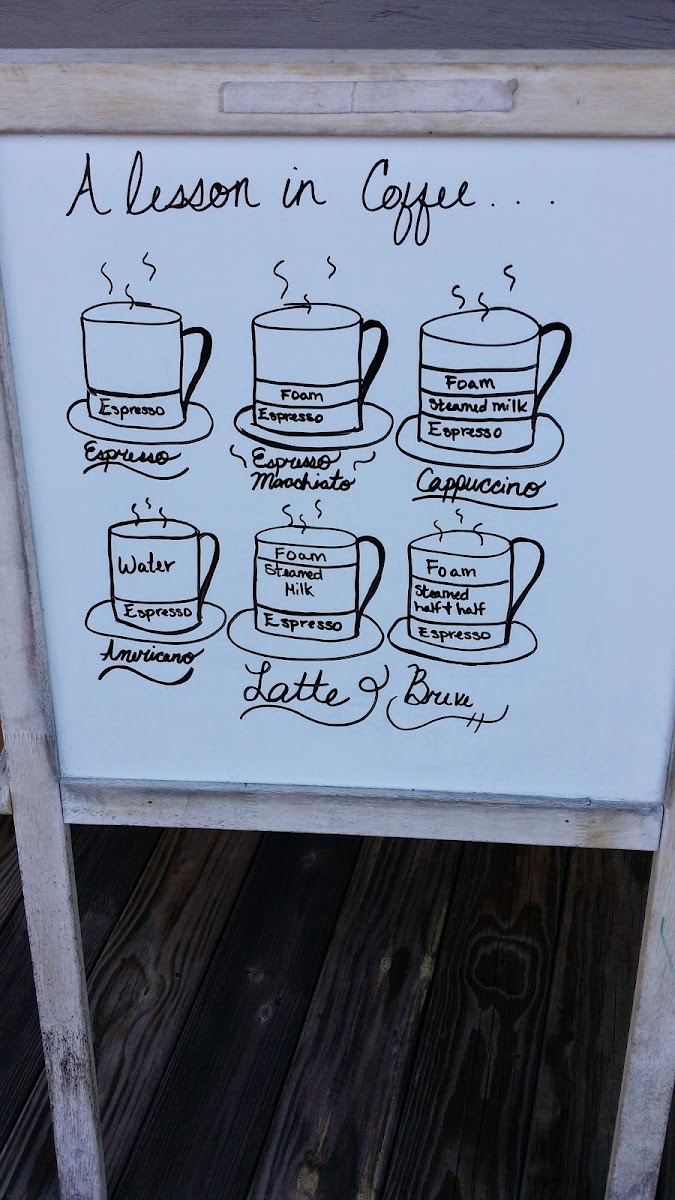 A lesson in Coffee....
Espresso
Espresso
Foam
Espresso
Espresso
Macchiato
Foam
Steamed milk
Espresso
Cappuccino
Water
Espresso
Americano
Foam
Steamed
Milk
Espresso
Latte
Foam
Steamed
half + half
Espresso
Breve